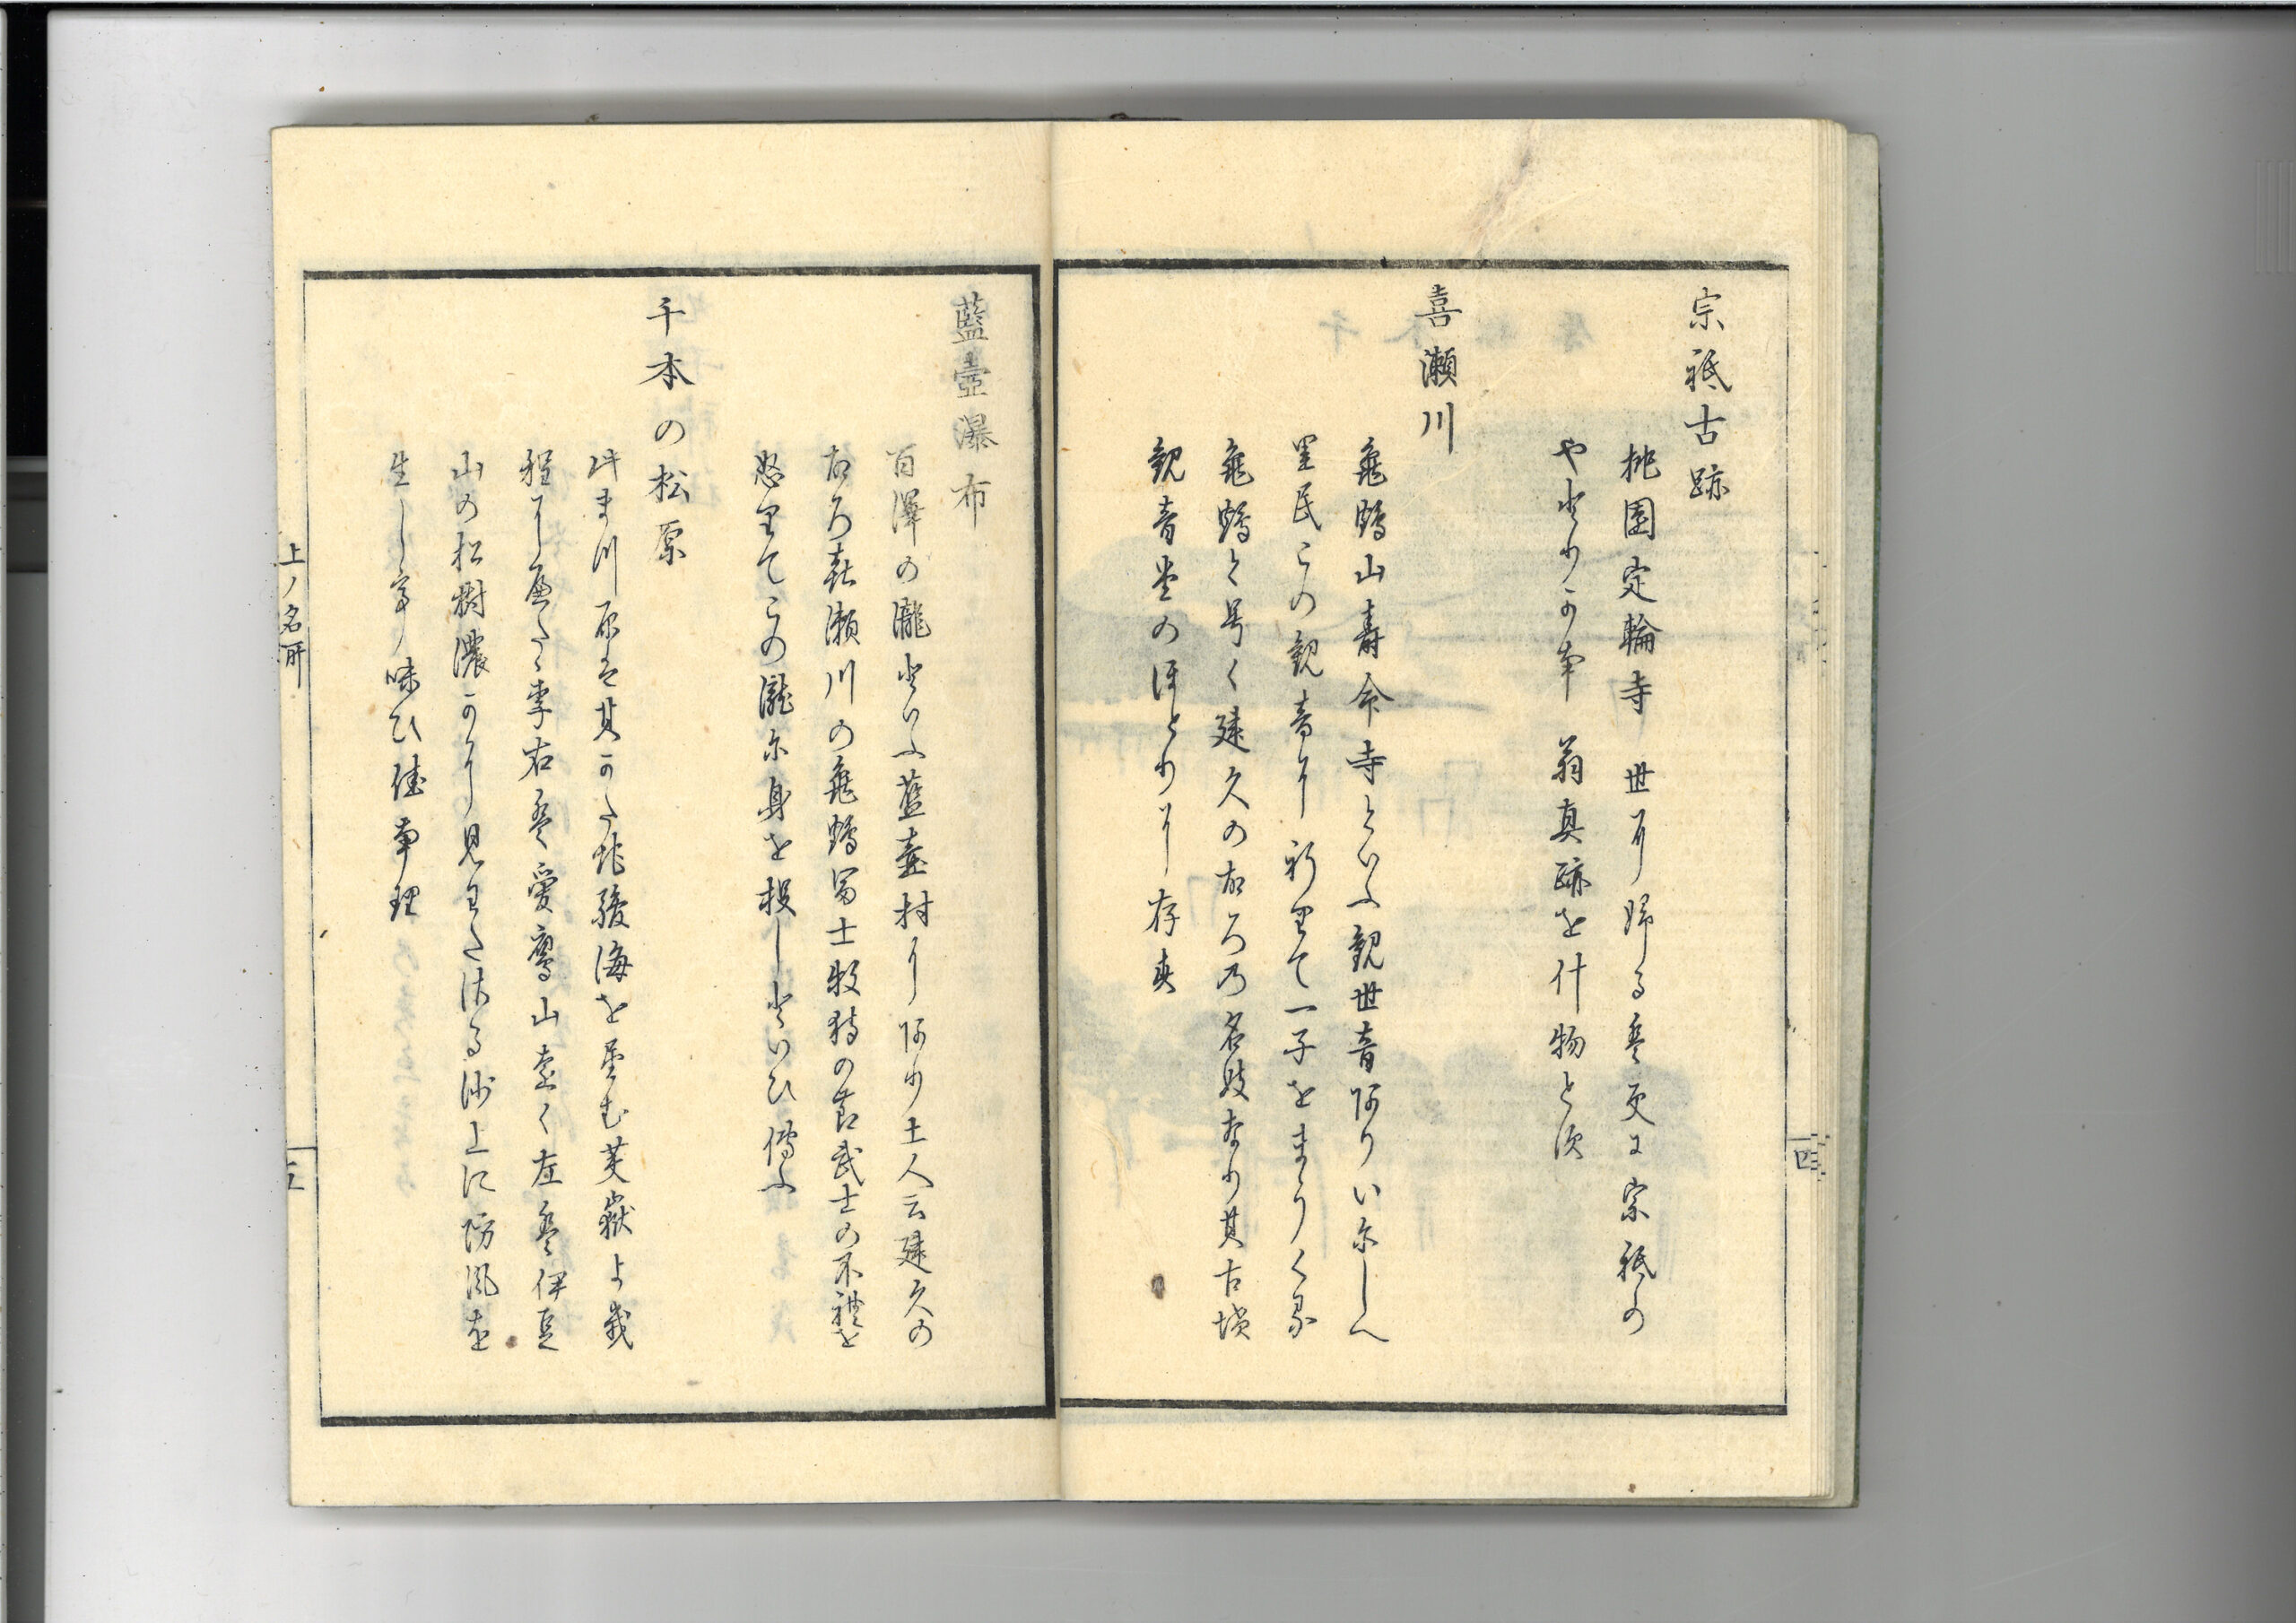 宗祇古跡
桃園定輪寺 世に帰る春更に宗祇の
やとりかな 翁真跡を什物とす
喜瀬川
亀鶴山寿命寺といふ観世音ありいにしへ
里民この観音に祈里て一子をまうくる
亀鶴と号く建久のころの名妓なり其古墳
観音堂のほとりに存す
藍壺瀑布
百澤の瀧といふ藍壷村にあり土人云建久の
ころ喜瀬川の亀鶴冨士牧狩の節武士の不禮を
怒里てこの瀧に身を投しといひ傳ふ
千本の松原
沖ま川原は其かた北駿海を望む芙嶽よ
程に 右は愛鷹山遠く左は伊豆
山の松樹濃かに見わたさる沙上に防風を
生し 味ひ佳
上ノ名所
三
四